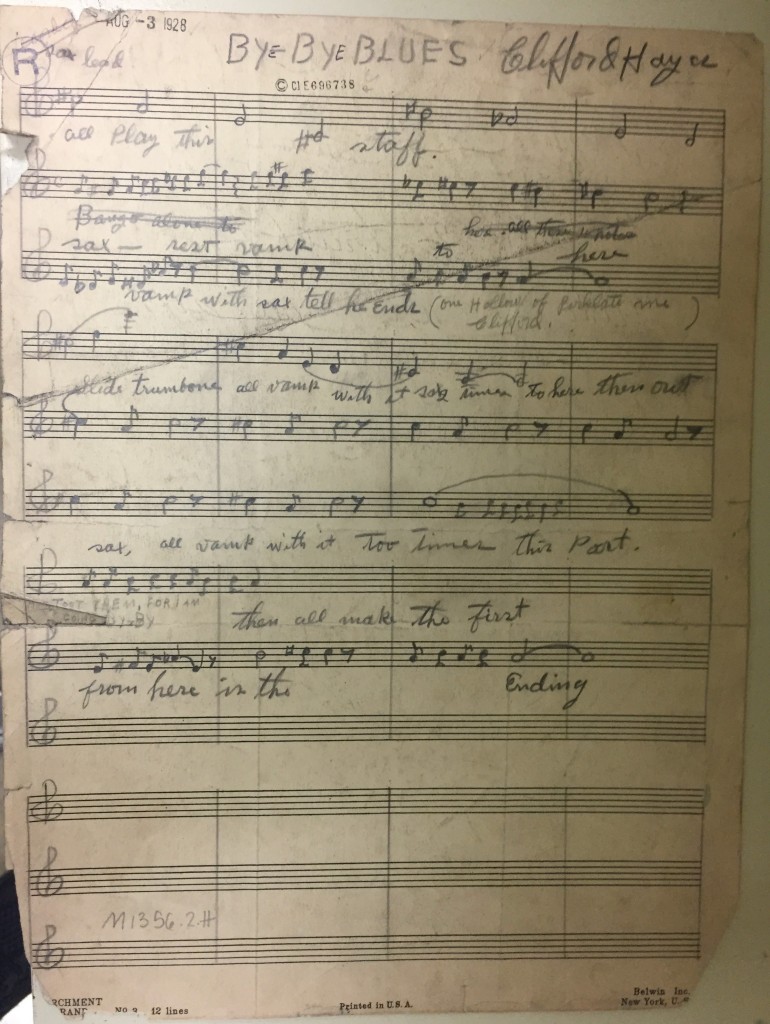 AUG -3 1928
BYE-BYE BLUES. Clifford Hayes
R sax lead
© CIE696738
all Play this staff.
Banjo alone to
sax - rest vamp to here
vamp with sax tell he Ends (one Hollow of me Clifford.)
slide trumbone all vamp with it times to here then out
sax, all vamp with it Too Times this Part.
TOOT THEM, FOR I AM
GOING BY-BY
then all make the first
from here is the Ending
M1356.2.H
RCHMENT
RAND
No 9 12 lines
Printed in U.S.A.
Belwin Inc.
New York, U.S